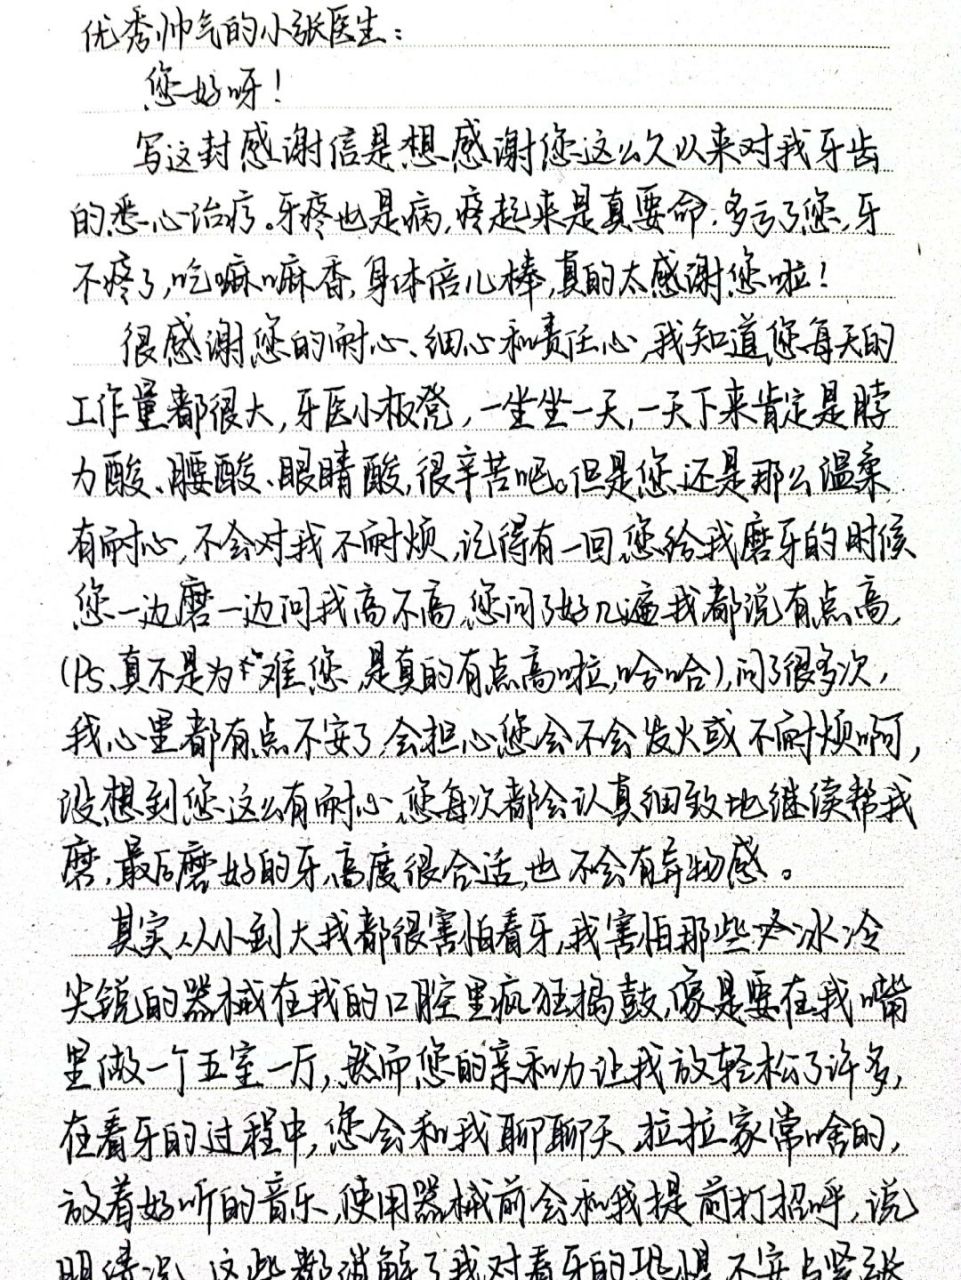 优秀帅气的小张医生：
您好呀！
写这封感谢信是想感谢您这么久以来对我牙齿
的悉心治疗。牙疼也是病，疼起来是真要命，多亏了您，牙
不疼了，吃嘛嘛香，身体倍儿棒，真的太感谢您啦！
很感谢您的耐心、细心和责任心，我知道您每天的
工作量都很大，牙医小板凳，一坐坐一天，一天下来肯定是脖
力酸、腰酸、眼睛酸，很辛苦吧。但是您还是那么温柔
有耐心，不会对我不耐烦，记得有一回您给我磨牙的时候
您一边磨一边问我高不高，您问了好几遍我都说有点高，
(Ps、真不是为难您，是真的有点高啦，哈哈)，问了很多次，
我心里都有点不安了，会担心您会不会发火或不耐烦啊，
没想到您这么有耐心，您每次都会认真细致地继续帮我
磨，最后磨好的牙，高度很合适，也不会有异物感。
其实从小到大我都很害怕看牙，我害怕那些冰冷
尖锐的器械在我的口腔里疯狂捣鼓，像是要在我嘴
里做一个五室一厅，然而您的亲和力让我放轻松了许多，
在看牙的过程中，您会和我聊聊天，拉拉家常啥的，
放着好听的音乐，使用器械前会和我提前打招呼，说
明情况，这些都消解了我对看牙的恐惧、不安与紧张